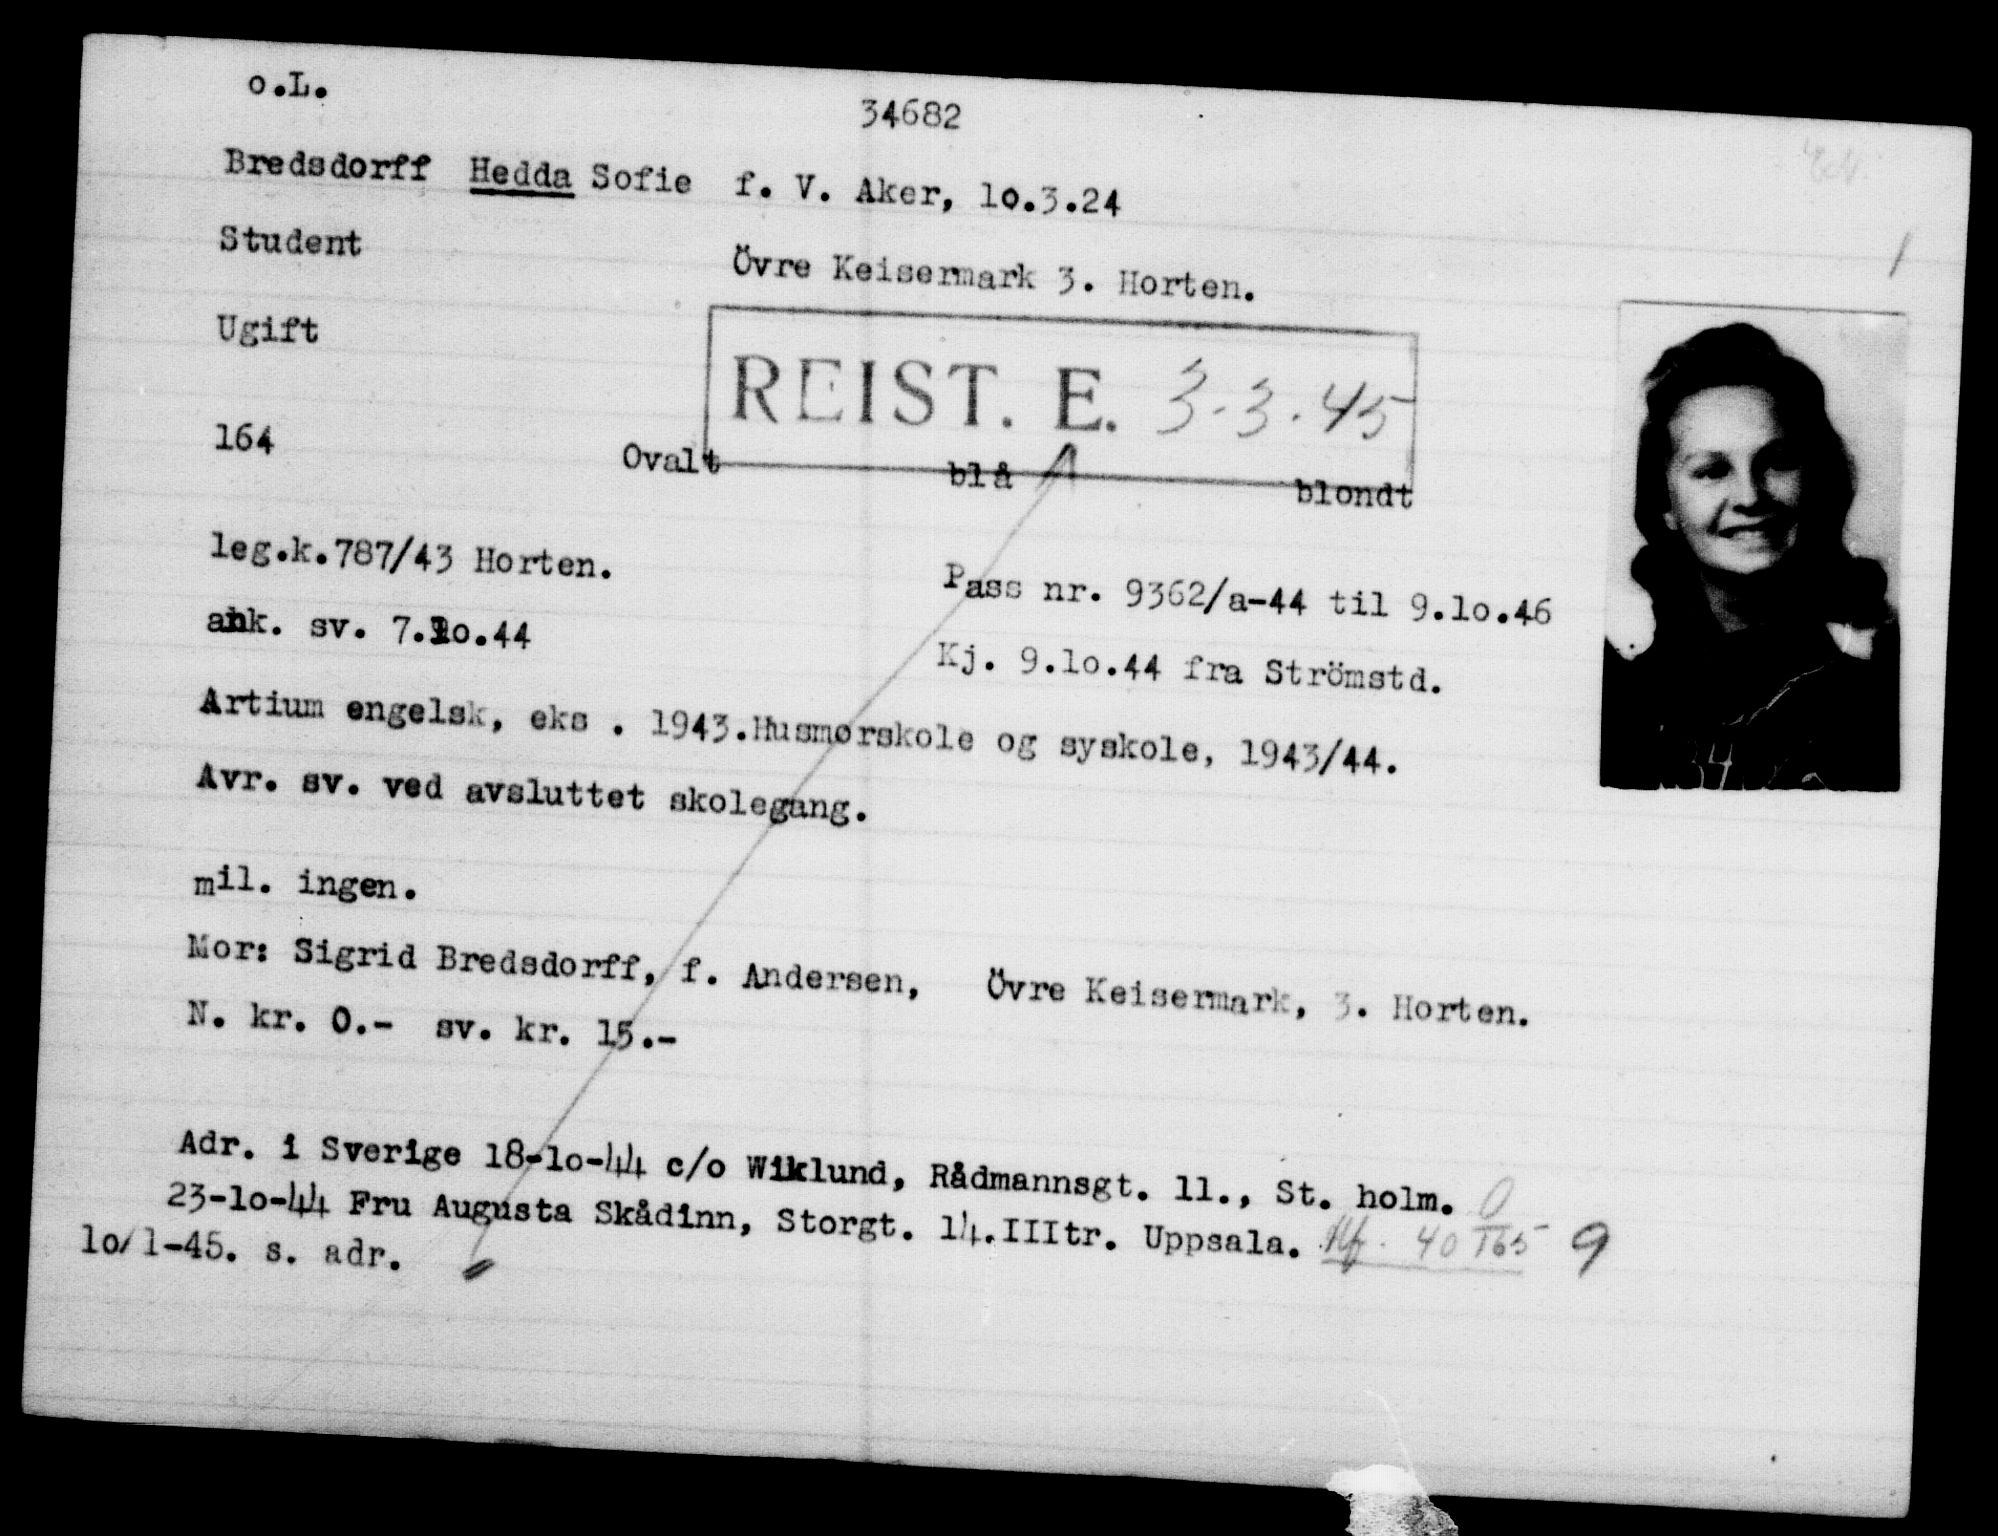 o.L.
34682
Bredsdorff Hedda Sofie f. V. Aker, lo.3.24
Student
Övre Keisermark 3. Horten.
Ugift
REIST. E. 3-3.45
164 Ovalt blå blondt
leg.k.787/43 Horten.
Pass nr. 9362/a-44 til 9.lo.46
ank. sv. 7.lo.44
Kj. 9.lo.44 fra Strömstd.
Artium engelsk, eks . 1943.Husmorskole og syskole, 1943/44.
Avr. sv. ved avsluttet skolegang.
mil. ingen.
Mor: Sigrid Bredsdorff, f. Andersen, Övre Keisermark, 3. Horten.
N. kr. 0.- sv. kr. 15.-
Adr. i Sverige 18-lo-44 c/o Wiklund, Rådmannsgt. 11., St. holm.
23-lo-44 Fru Augusta Skådinn, Storgt. 14.IIItr. Uppsala. 9
lo/1-45. s. adr.